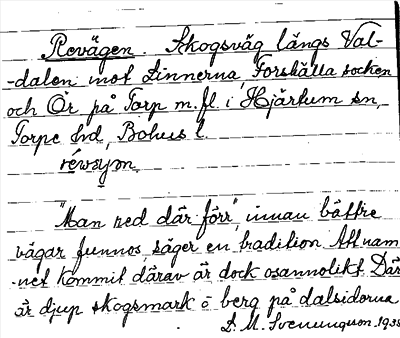 Revägen. Skogsväg längs Val-
-dalen mot Linnerna Forshälla socken
och Ör på Torp m. fl. i Hjärtum sn,
Torpe hd, Bohus l.
révæyən.
"Man red där förr", innan bättre
vägar funnos, säger en tradition. Att nam-
-net kommit därav är dock osannolikt. Där
är djup skogsmark o berg på dalsidorna
D. M. Svenungsson. 193